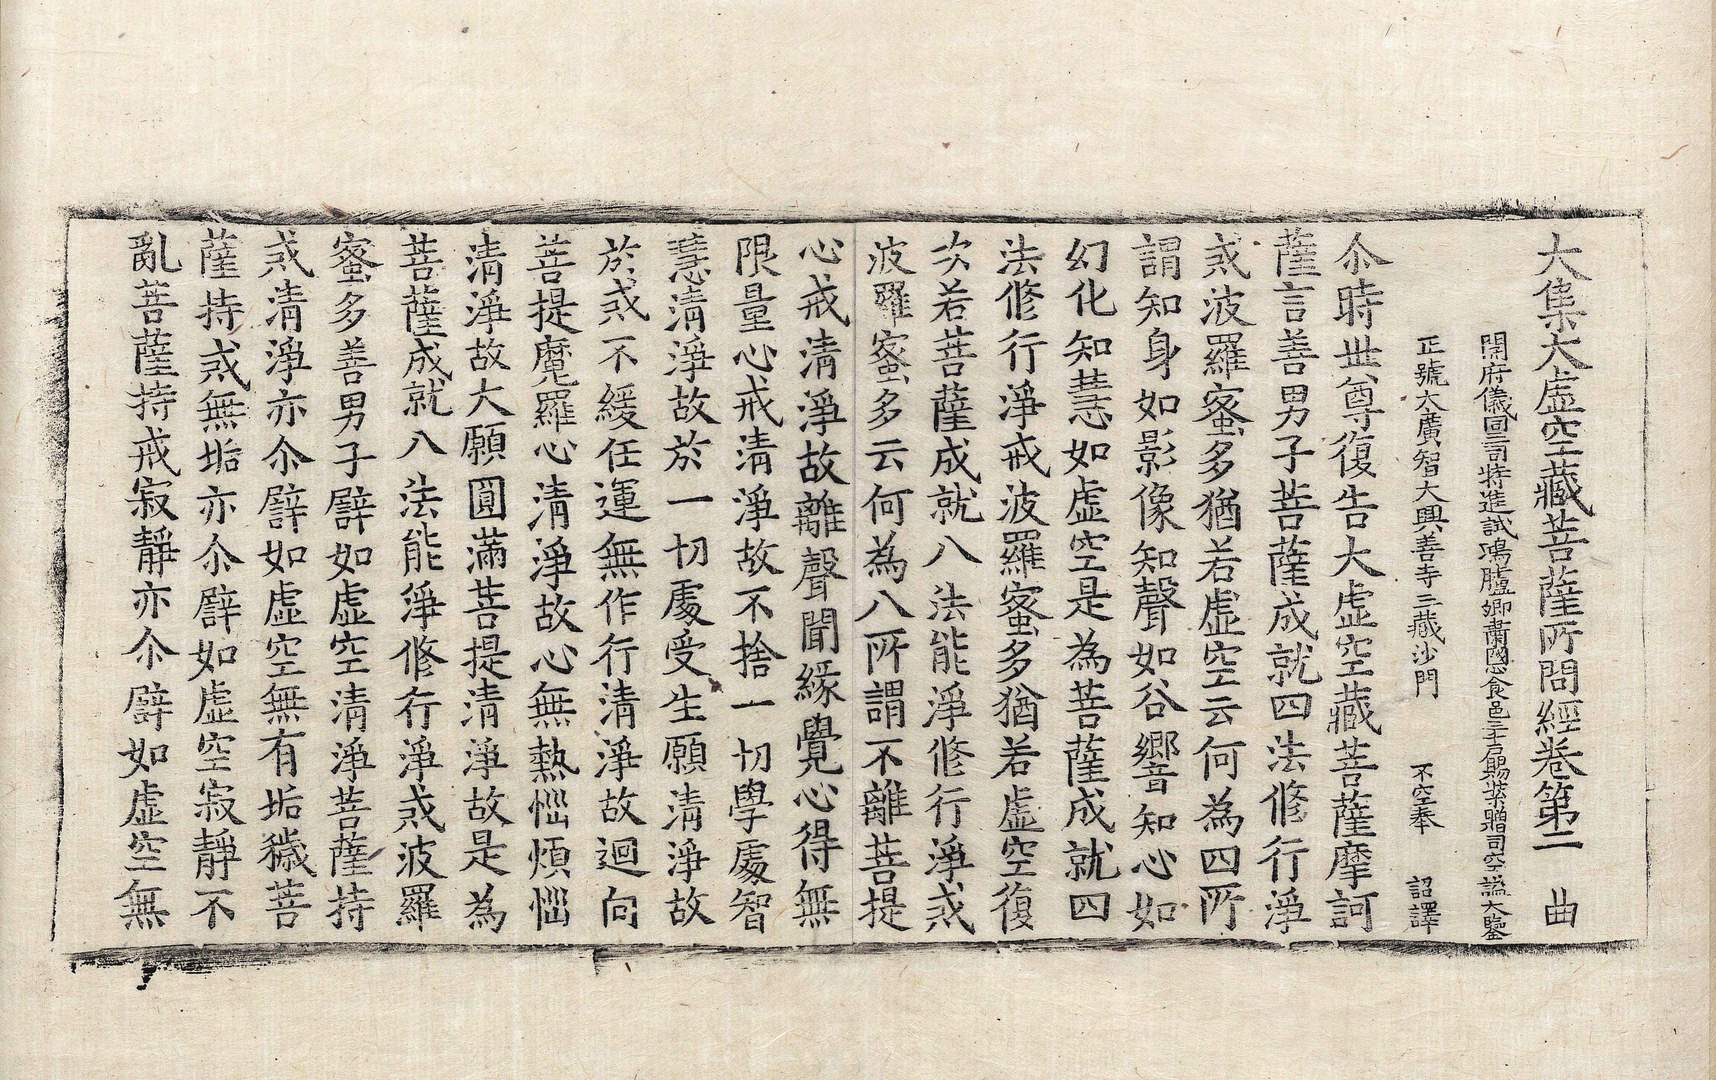 大集大虛空藏菩薩所問經卷第二　曲
開府儀同三司特進試鴻臚卿肅國公食邑三千戶賜紫贈司空謚大鑒
正號大廣智大興善寺三藏沙門　不空奉　詔譯
尒時世尊復告大虛空藏菩薩摩訶
薩言善男子菩薩成就四法修行淨
戒波羅蜜多猶若虛空云何為四所
謂知身如影像知聲如谷響知心如
幻化知慧如虛空是為菩薩成就四
法修行淨戒波羅蜜多猶若虛空復
次若菩薩成就八法能淨修行淨戒
波羅蜜多云何為八所謂不離菩提
心戒清淨故離聲聞緣覺心得無
限量心戒清淨故不捨一切學處智
慧清淨故於一切處受生願清淨故
於戒不緩任運無作行清淨故迴向
菩提魔羅心清淨故心無熱惱煩惱
清淨故大願圓滿菩提清淨故是為
菩薩成就八法能淨修行淨戒波羅
蜜多善男子譬如虛空清淨菩薩持
戒清淨亦尒譬如虛空無有垢穢菩
薩持戒無垢亦尒譬如虛空寂靜不
亂菩薩持戒寂靜亦尒譬如虛空無